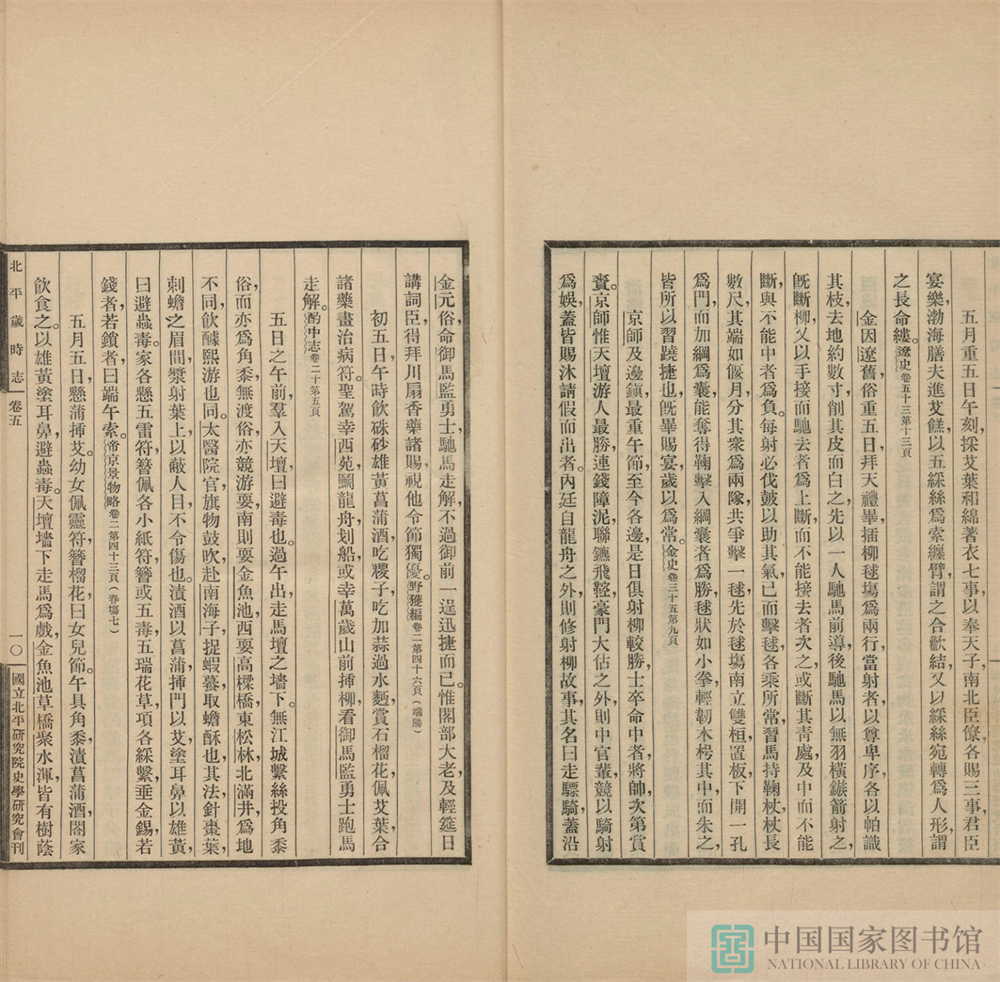 五月重五日午刻採艾葉和綿著衣七事以奉天子南北臣僚各賜三事君臣
宴樂渤海膳夫進艾餻以五綵絲爲索纏臂謂之合歡結又以綵絲宛轉爲人形謂
之長命縷。遼史卷五十三第十三頁
金因遼舊俗重五日拜天禮畢插柳毬塲爲兩行當射者以尊卑序各以帕識
其枝去地約數寸削其皮而白之先以一人馳馬前導後馳馬以無羽橫鏃箭射之
旣斷柳又以手接而馳去者爲上斷而不能接去者次之或斷其靑處及中而不能
斷與不能中者爲負。每射必伐鼓以助其氣已而擊毬各乘所常習馬持鞠杖杖長
數尺其端如偃月分其衆爲兩隊共爭擊一毬先於毬塲南立雙桓置板下開一孔
爲門而加網爲囊能奪得鞠擊入網囊者爲勝毬狀如小拳輕韌木枵其中而朱之
皆所以習蹺捷也旣畢賜宴歲以爲常。金史卷三十五第九頁
京師及邊鎭最重午節至今各邊是日俱射柳較勝士卒命中者將帥次第賞
賚。京師惟天壇游人最勝連錢障泥聯鑣飛鞚豪門大估之外則中官輩競以騎射
爲娛蓋皆賜沐請假而出者。內廷自龍舟之外則修射柳故事其名曰走驃騎蓋沿
金元俗命御馬監勇士馳馬走解不過御前一逞迅捷而已。惟閣部大老及輕筵日
講詞臣得拜川扇香藥諸賜視他令節獨優。野獲編卷二第四十六頁(端陽)
初五日午時飮硃砂雄黃菖蒲酒吃糉子吃加蒜過水麪賞石榴花佩艾葉合
諸藥畫治病符。聖駕幸西苑鬭龍舟划船或幸萬歲山前揷柳看御馬監勇士跑馬
走解。酌中志卷二十第五頁
五日之午前羣入天壇曰避毒也。過午出走馬壇之墻下。無江城繫絲投角黍
俗而亦爲角黍無渡俗亦競游耍南則耍金魚池西耍高樑橋東松林北滿井爲地
不同飮醵熙游也同。太醫院官旗物鼓吹赴南海子捉蝦蟇取蟾酥也其法針棗葉
刺蟾之眉間漿射葉上以蔽人目不令傷也。漬酒以菖蒲揷門以艾塗耳鼻以雄黃
曰避蟲毒。家各懸五雷符簪佩各小紙符簪或五毒五瑞花草項各綵繫垂金錫若
錢者若鎖者曰端午索。帝京景物略卷二第四十三頁(春塲七)
五月五日懸蒲揷艾。幼女佩靈符簪榴花曰女兒節。午具角黍漬菖蒲酒闔家
飮食之。以雄黃塗耳鼻避蟲毒。天壇墻下走馬爲戲金魚池草橋聚水渾皆有樹蔭
北平歲時志 卷五 一〇 國立北平研究院史學研究會刊
中国国家图书馆
NATIONAL LIBRARY OF CHINA